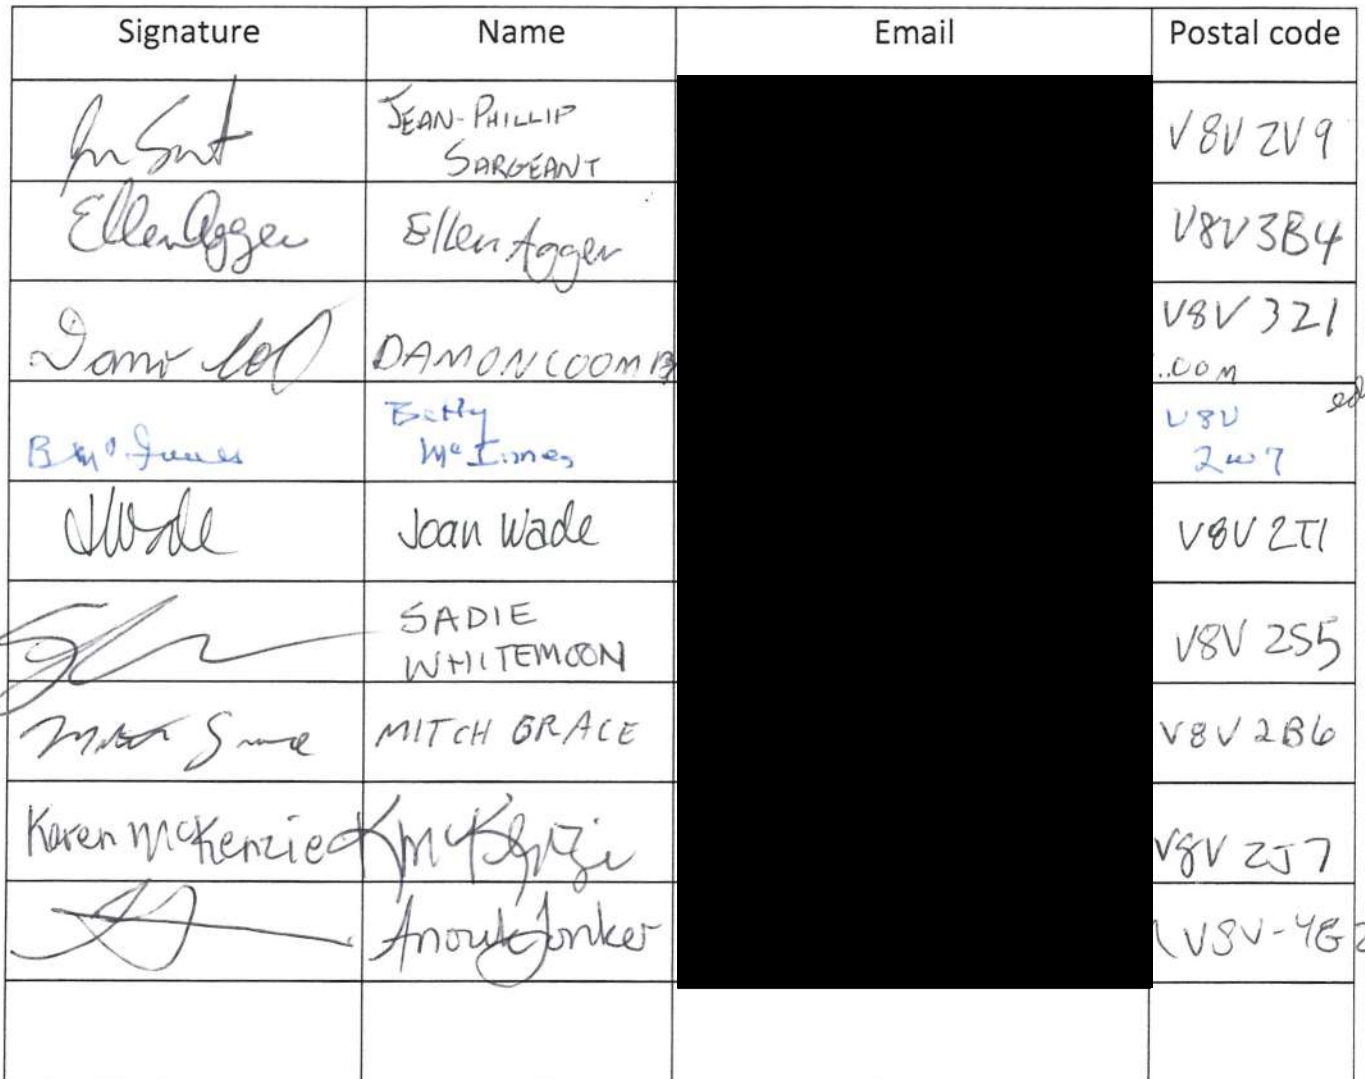 Signature Name Email Postal code
JEAN-PHILLIP
SARGEANT
V8V 2V9
Ellen Agger Ellen Agger V8V3B4
V8V 3Z1
DAMON COOMB
..com
Betty
McInnes
V8V
2W7
JWade Joan Wade V8V 2T1
SADIE
WHITEMOON
V8V 2S5
MITCH GRACE V8V 2B6
Karen McKenzie KMcKenzie V8V 2J7
Anouk Jonker V8V-4G2